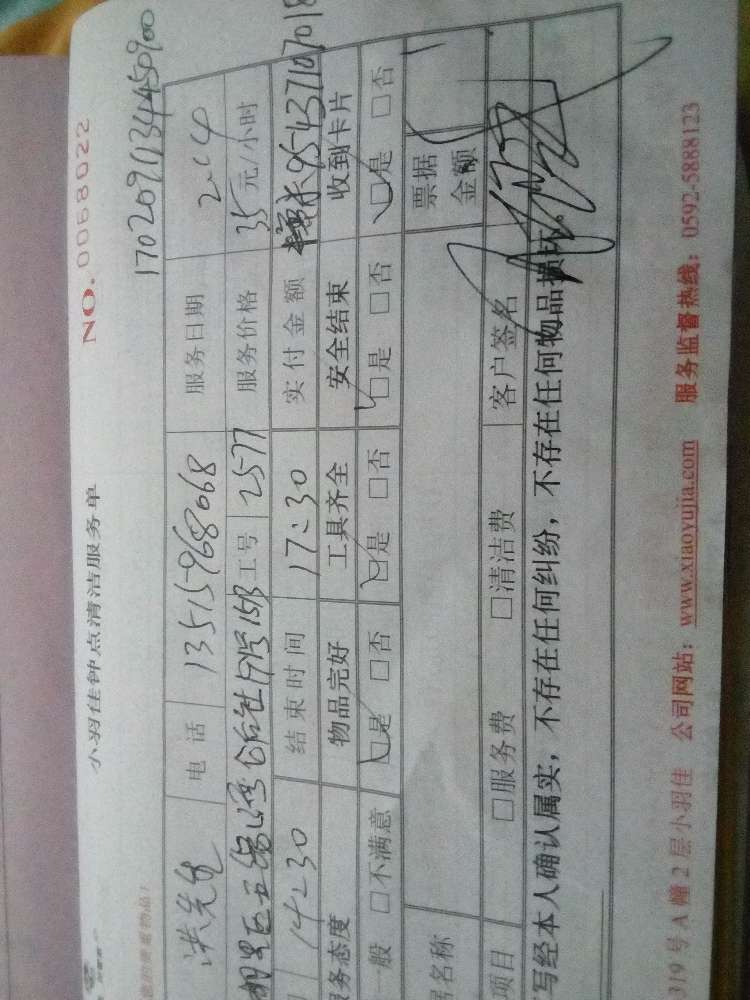 NO. 0068022
小羽佳钟点清洁服务单
170209134450900
洪先生 电话 13515968068 服务日期 2.4
湖里区五缘 工号 2577 服务价格 35元/小时
14:30 结束时间 17:30 实付金额 95437107018
务态度 物品完好 工具齐全 安全结束 收到卡片
一般 □不满意 □是 □否 □是 □否 □是 □否 □是 □否
名称 票据金额
项目 □服务费 □清洁费 客户签名
写经本人确认属实，不存在任何纠纷，不存在任何物品损坏。
319号A幢2层小羽佳 公司网站：www.xiaoyujia.com 服务监督热线：0592-5888123